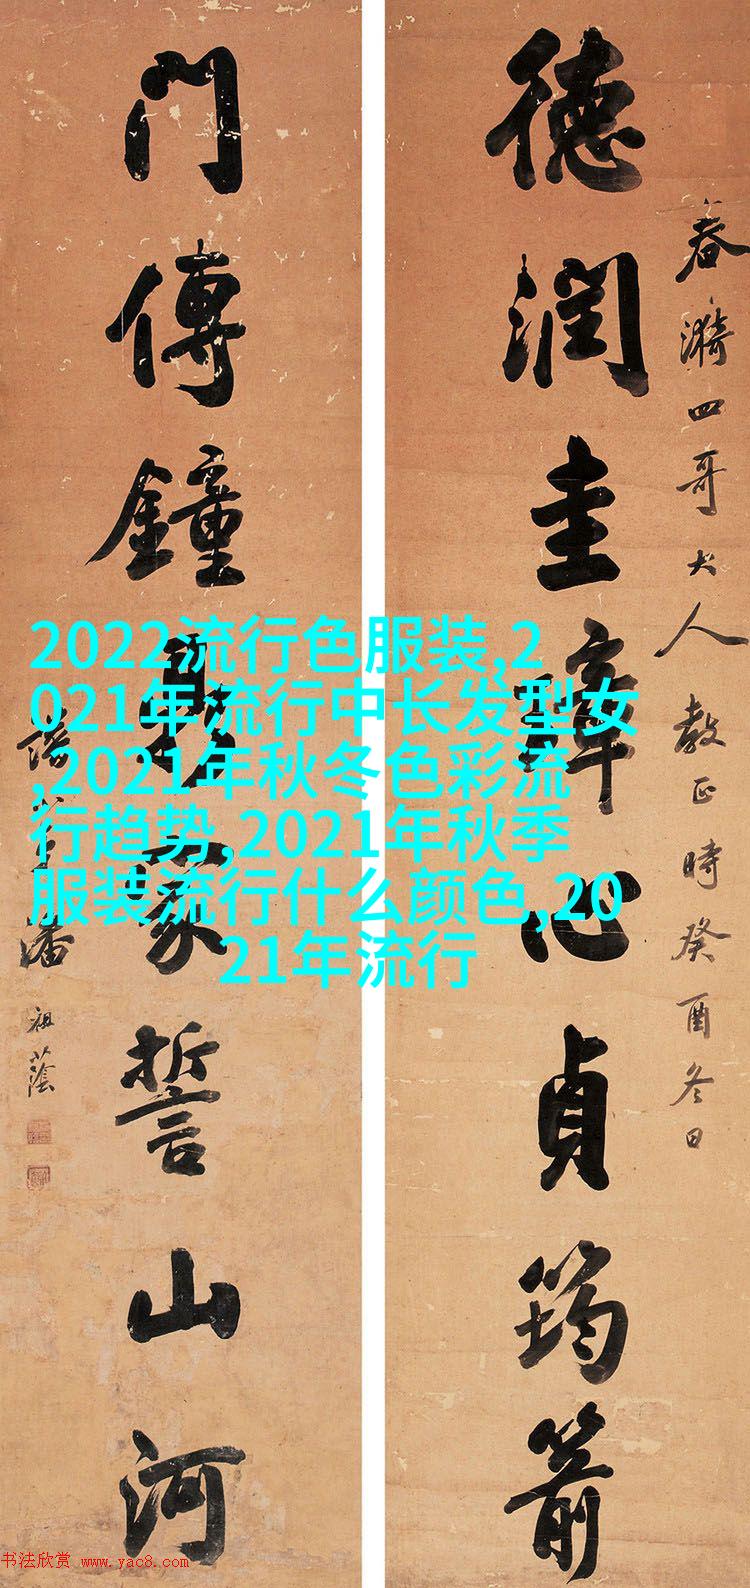 春漪四哥大人教正時癸酉冬日
德潤圭璋心貞筠箭
門傳鐘鼎家誓山河
潘祖蔭
2022流行色服装,2
021年流行中长发型女
,2021年秋冬色彩流
行趋势,2021年秋季
服装流行什么颜色,20
21年流行
书法欣赏 www.yac8.com